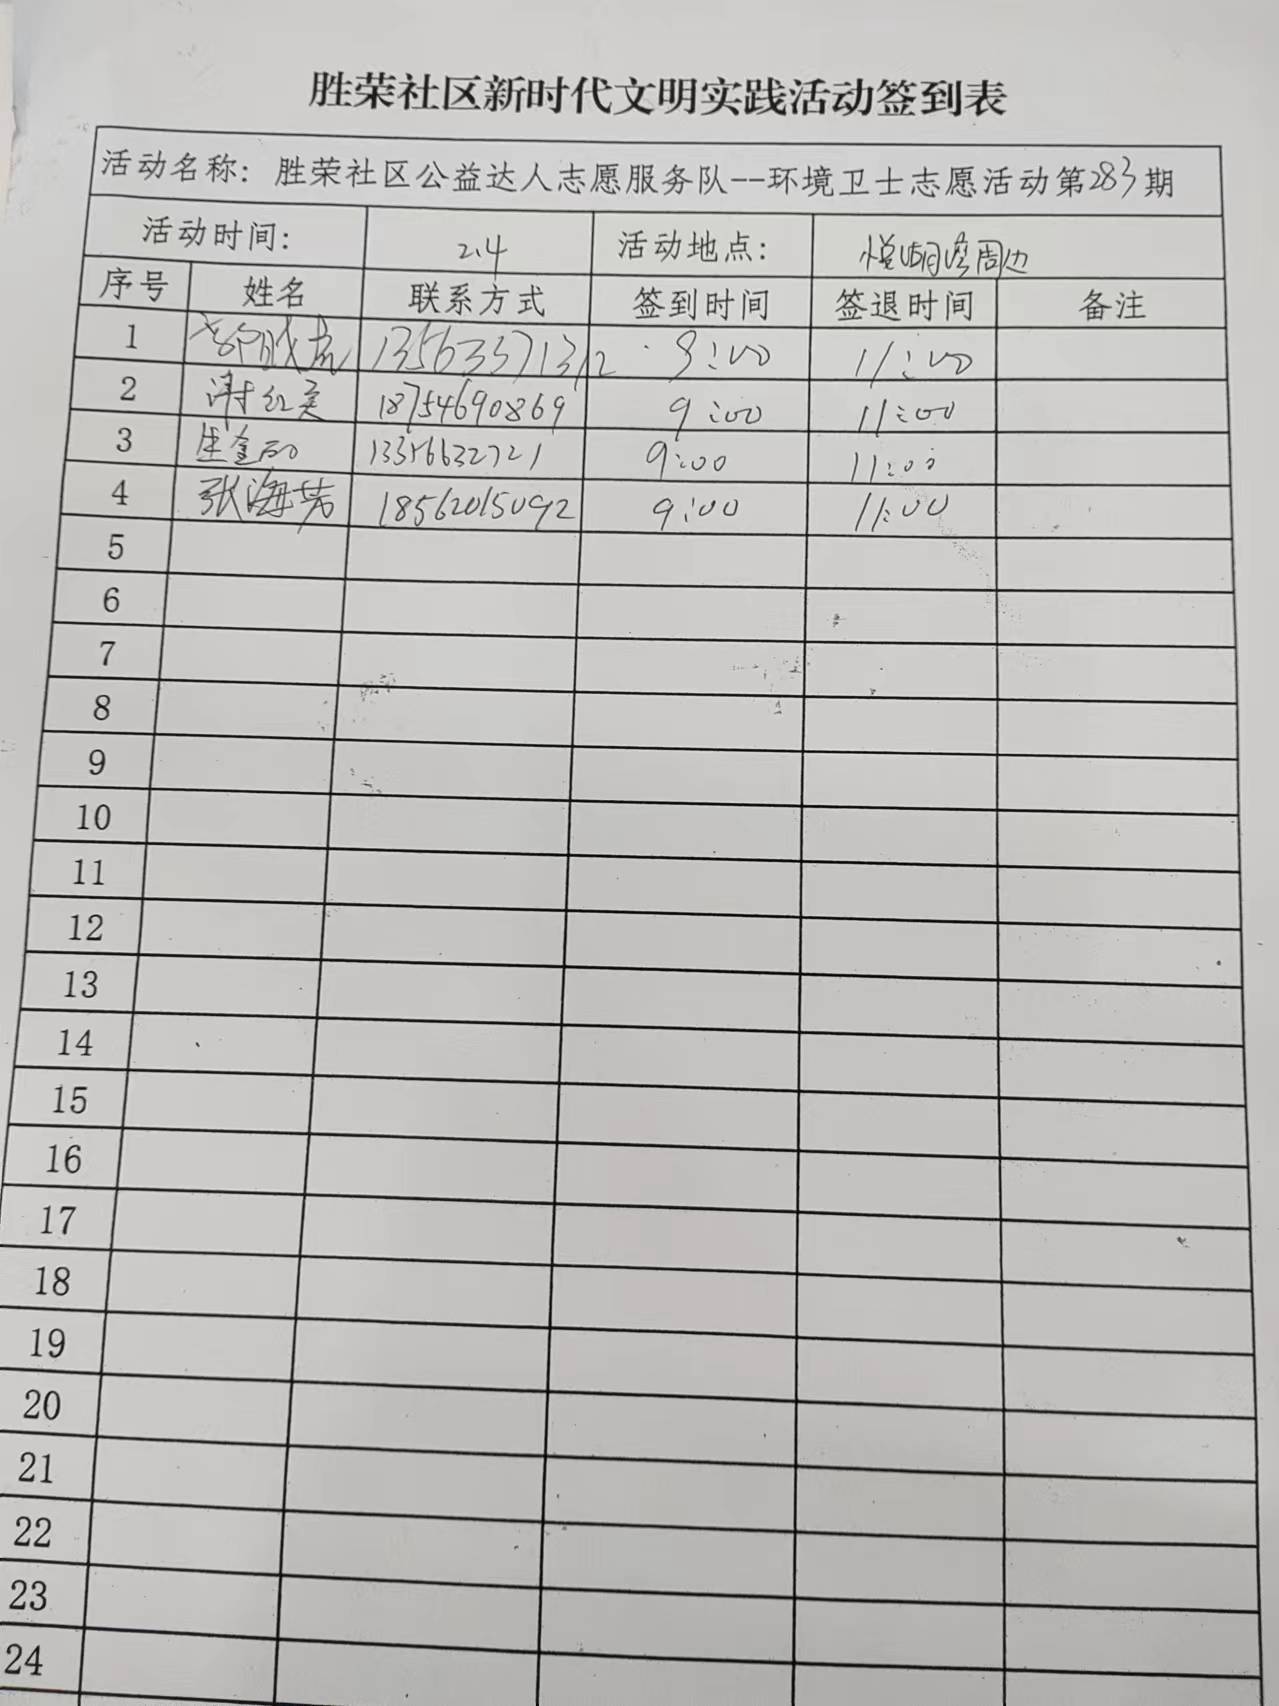 胜荣社区新时代文明实践活动签到表
活动名称：胜荣社区公益达人志愿服务队--环境卫士志愿活动第283期
活动时间： 2.4 活动地点： 悦湖湾周边
序号 姓名 联系方式 签到时间 签退时间 备注
1 13563371312 9:00 11:00
2 谢红英 18754690869 9:00 11:00
3 13356632721 9:00 11:00
4 张海芳 18562015092 9:00 11:00
5
6
7
8
9
10
11
12
13
14
15
16
17
18
19
20
21
22
23
24